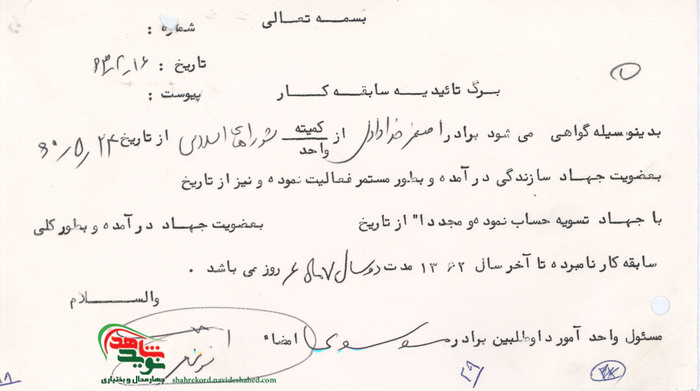 بسمه تعالی
شماره :
تاریخ : ۶۳٫۲٫۱۶
پیوست :
برگ تائیدیه سابقه کار
بدینوسیله گواهی می شود برادر اصغر خدادادی از کمیته واحد شوراهای اسلامی از تاریخ ۶۰٫۵٫۲۴
بعضویت جهاد سازندگی درآمده و بطور مستمر فعالیت نموده و نیز از تاریخ
با جهاد تسویه حساب نموده و مجددا" از تاریخ بعضویت جهاد درآمده و بطور کلی
سابقه کار نامبرده تا آخر سال ۱۳۶۲ مدت دو سال ۷ ماه ۶ روز می باشد .
والسلام
مسئول واحد آمور داوطلبین برادر موسوی امضاء
نوید شاهد
چهارمحال و بختیاری
shahrekord.navideshahed.com